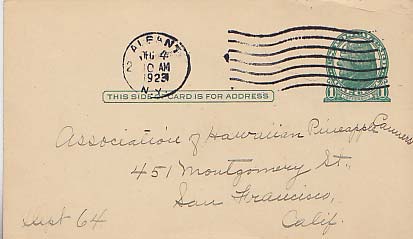 ALBANY
DEC 4
2 10 AM
1923
N.Y.
THIS SIDE OF CARD IS FOR ADDRESS
Association of Hawaiian Pineapple Canners
451 Montgomery St.,
San Francisco,
Calif.
Dept 64